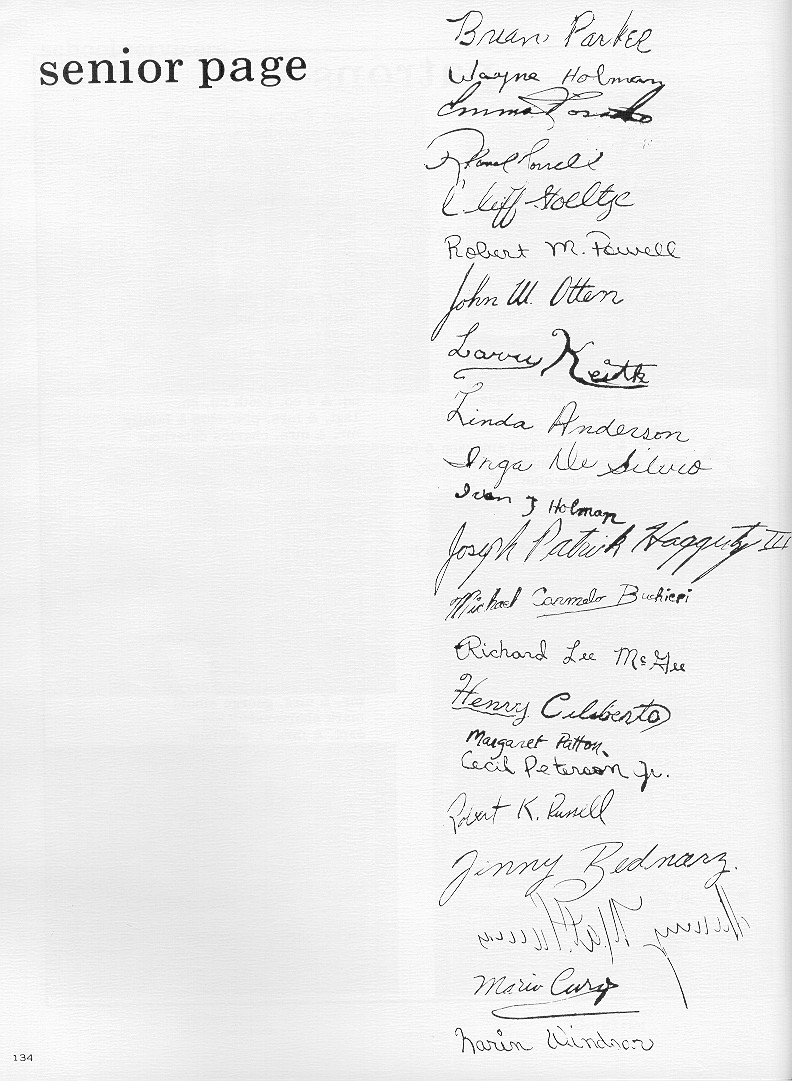 senior page
Brian Parker
Wayne Holman
Emma
Cliff Hoeltze
Robert M. Powell
John W. Otten
Larry Keith
Linda Anderson
Inga De Silvio
Ivan J Holman
Joseph Patrick Haggerty III
Michael Carmelo Buchieri
Richard Lee McGee
Henry Ciliberto
Margaret Patton
Cecil Peterson Jr.
Robert K. Russell
Jinny Bednarz.
Mario Cury
Karin Windsor
134